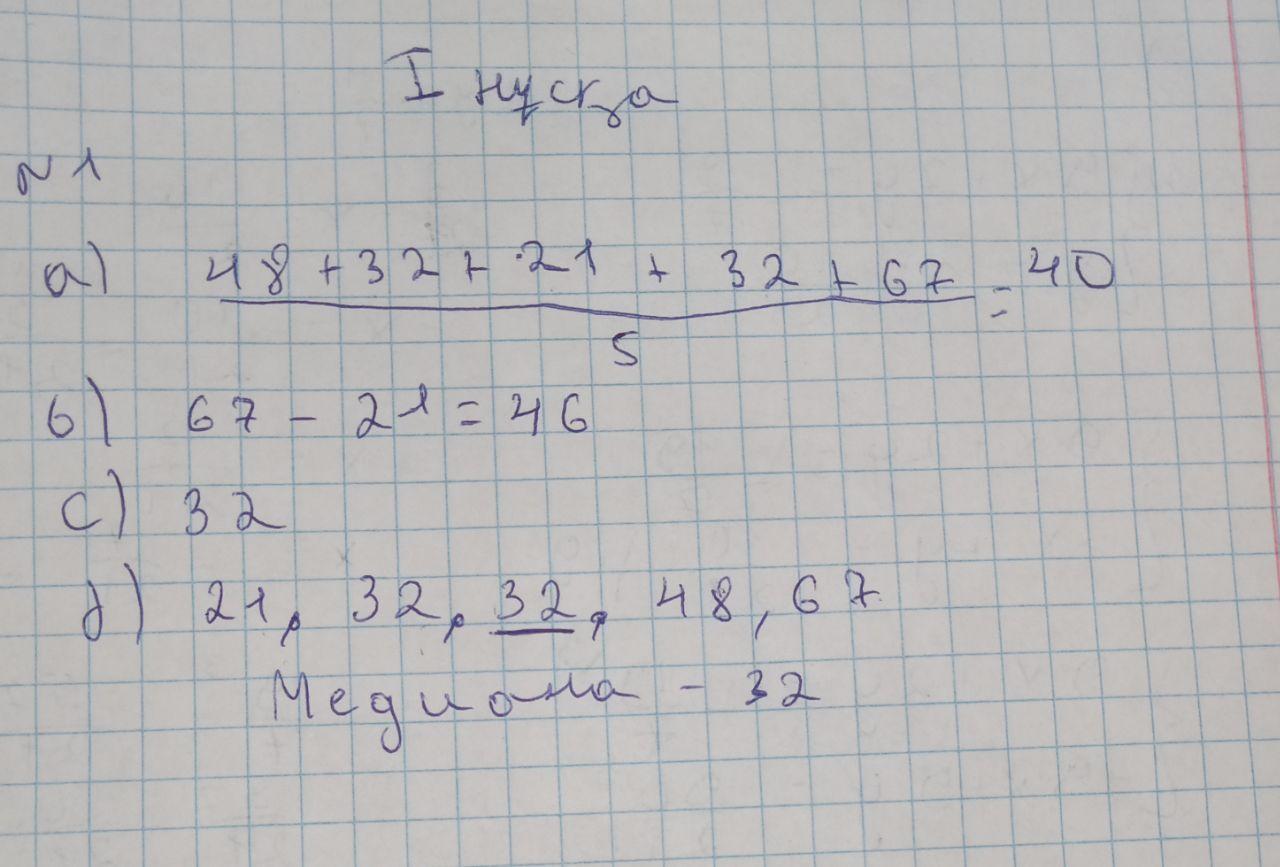 I нұсқа
№1
а) 48 + 32 + 21 + 32 + 67 = 40
5
б) 67 - 21 = 46
с) 32
д) 21, 32, 32, 48, 67
Медиана - 32